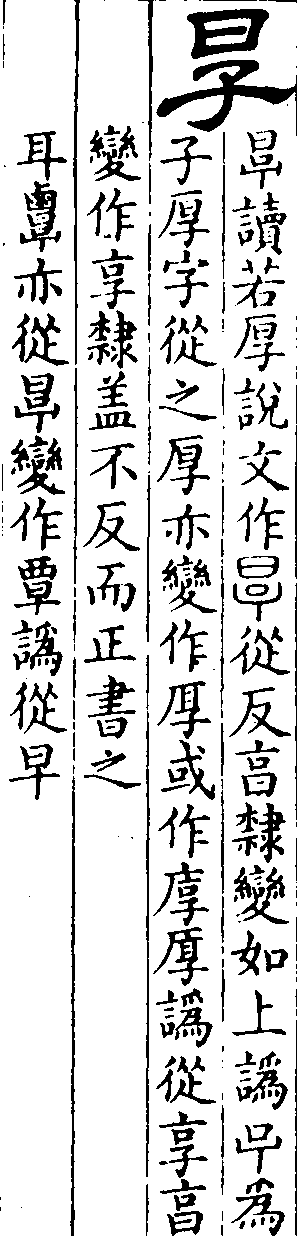 㫗
㫗讀若厚說文作㫗從反亯隸變如上譌為
子厚字從之厚亦變作厚或作厚譌從享亯
變作享隸盖不反而正書之
耳𪉷亦從㫗變作覃譌從早